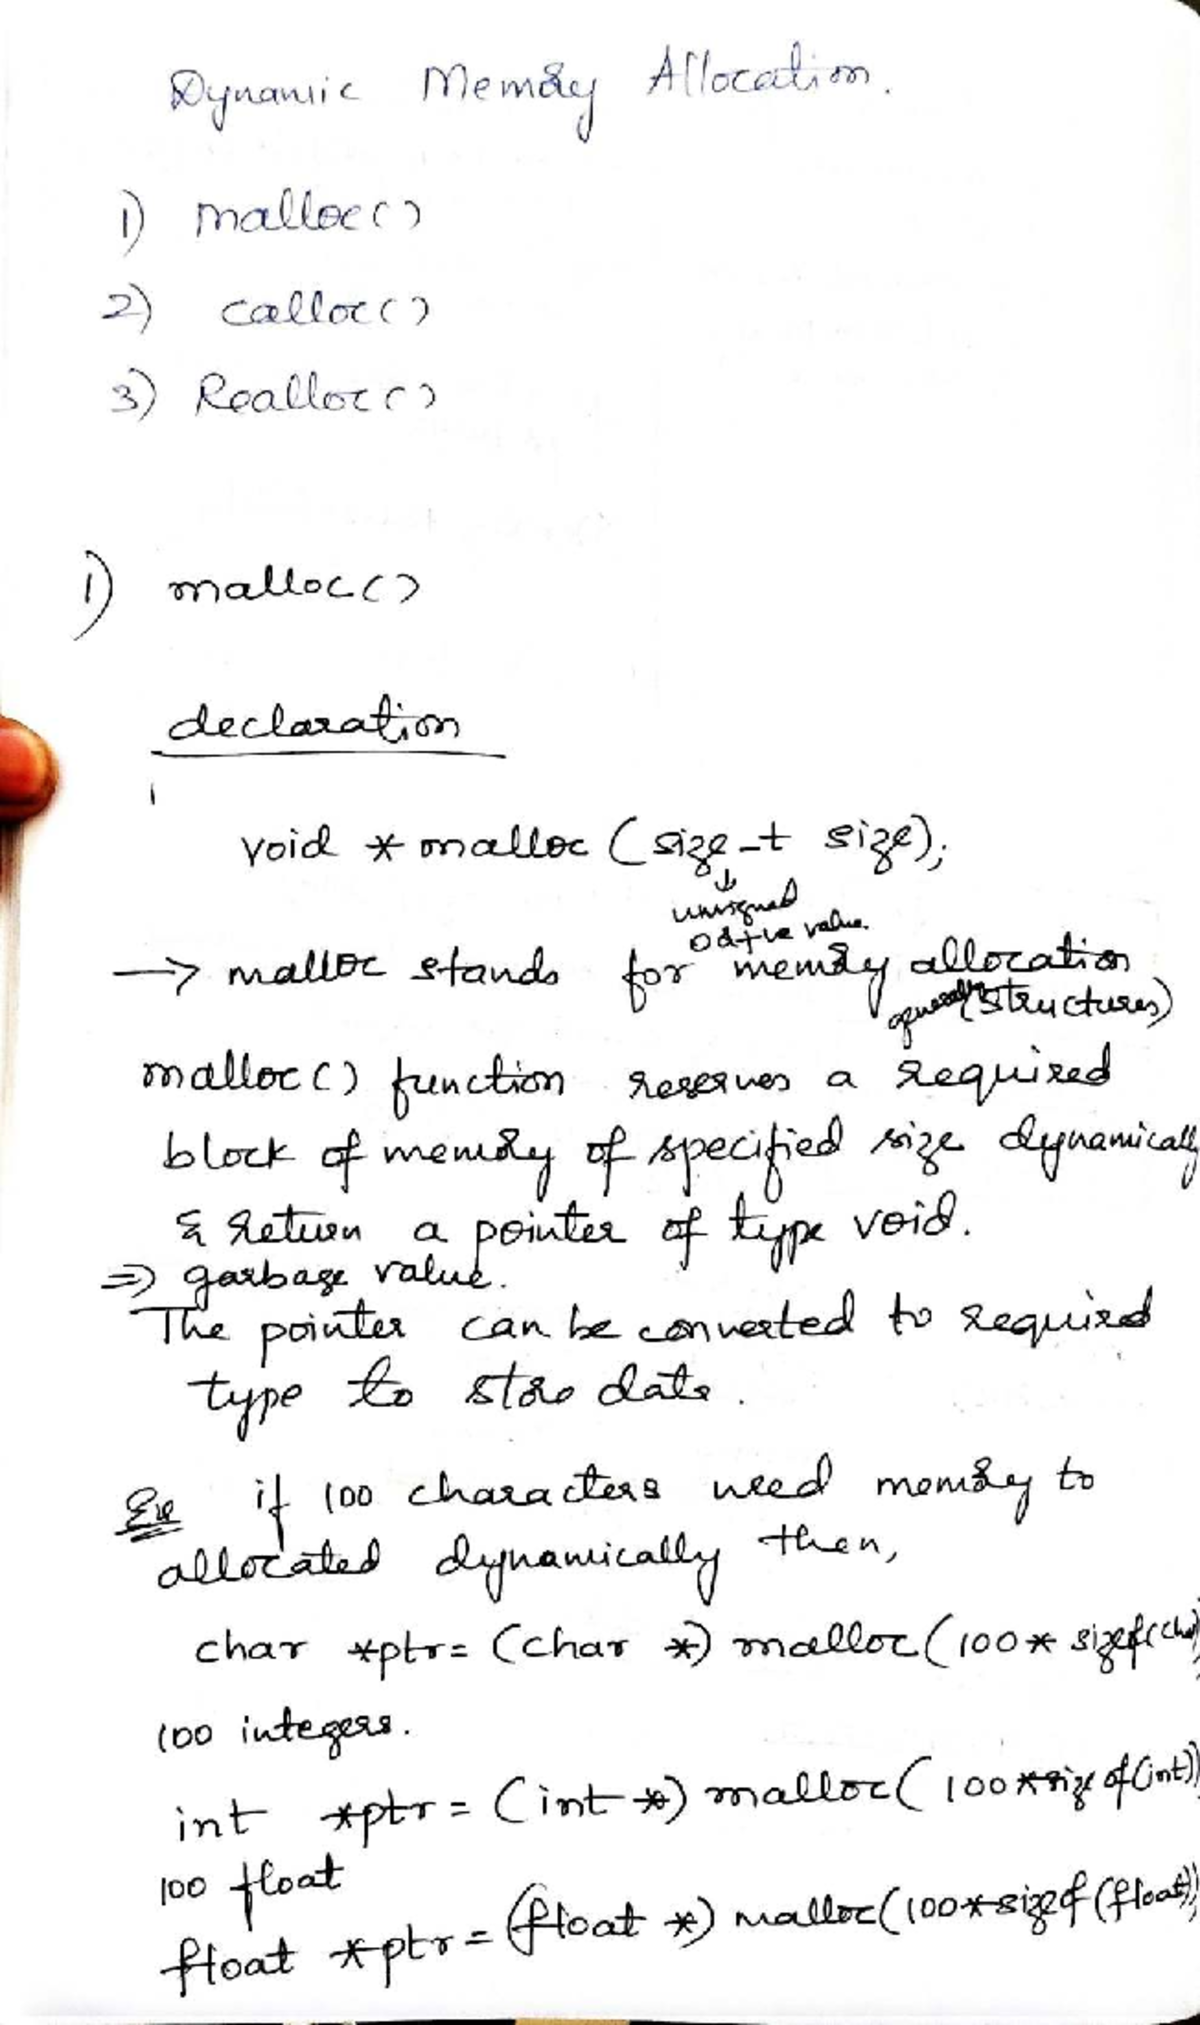 Dynamic Memory Allocation.
1) malloc()
2) calloc()
3) Realloc()
1) malloc()
declaration
void * malloc (size_t size);
↓
unsigned
0 d +ve value.
→ malloc stands for memory allocation
generally (structures)
malloc() function reserves a required
block of memory of specified size dynamically
& return a pointer of type void.
⇒ garbage value.
The pointer can be converted to required
type to store data.
Ex if 100 characters need memory to
allocated dynamically then,
char *ptr = (char *) malloc(100* sizeof(char)
100 integers.
int *ptr = (int *) malloc( 100 *size of(int))
100 float
float *ptr = (float *) malloc(100*sizeof (float));